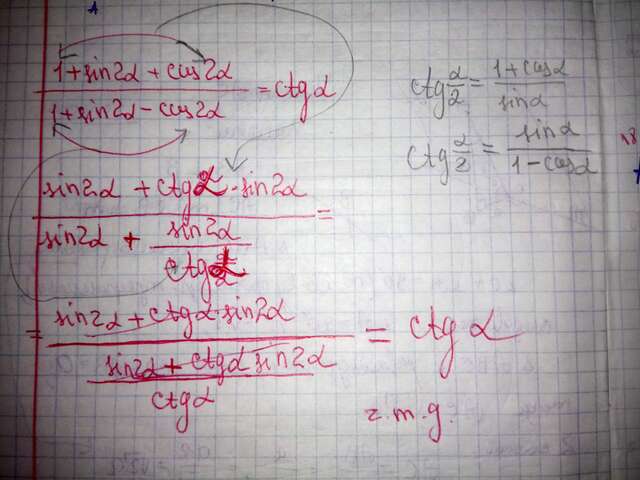 (1 + sin2α + cos2α) / (1 + sin2α - cos2α) = ctgα
(sin2α + ctgα · sin2α) / (sin2α + sin2α / ctgα) =
= (sin2α + ctgα · sin2α) / ((sin2α + ctgα sin2α) / ctgα) = ctgα
z.m.g.
ctg α/2 = (1 + cosα) / sinα
ctg α/2 = sinα / (1 - cosα)